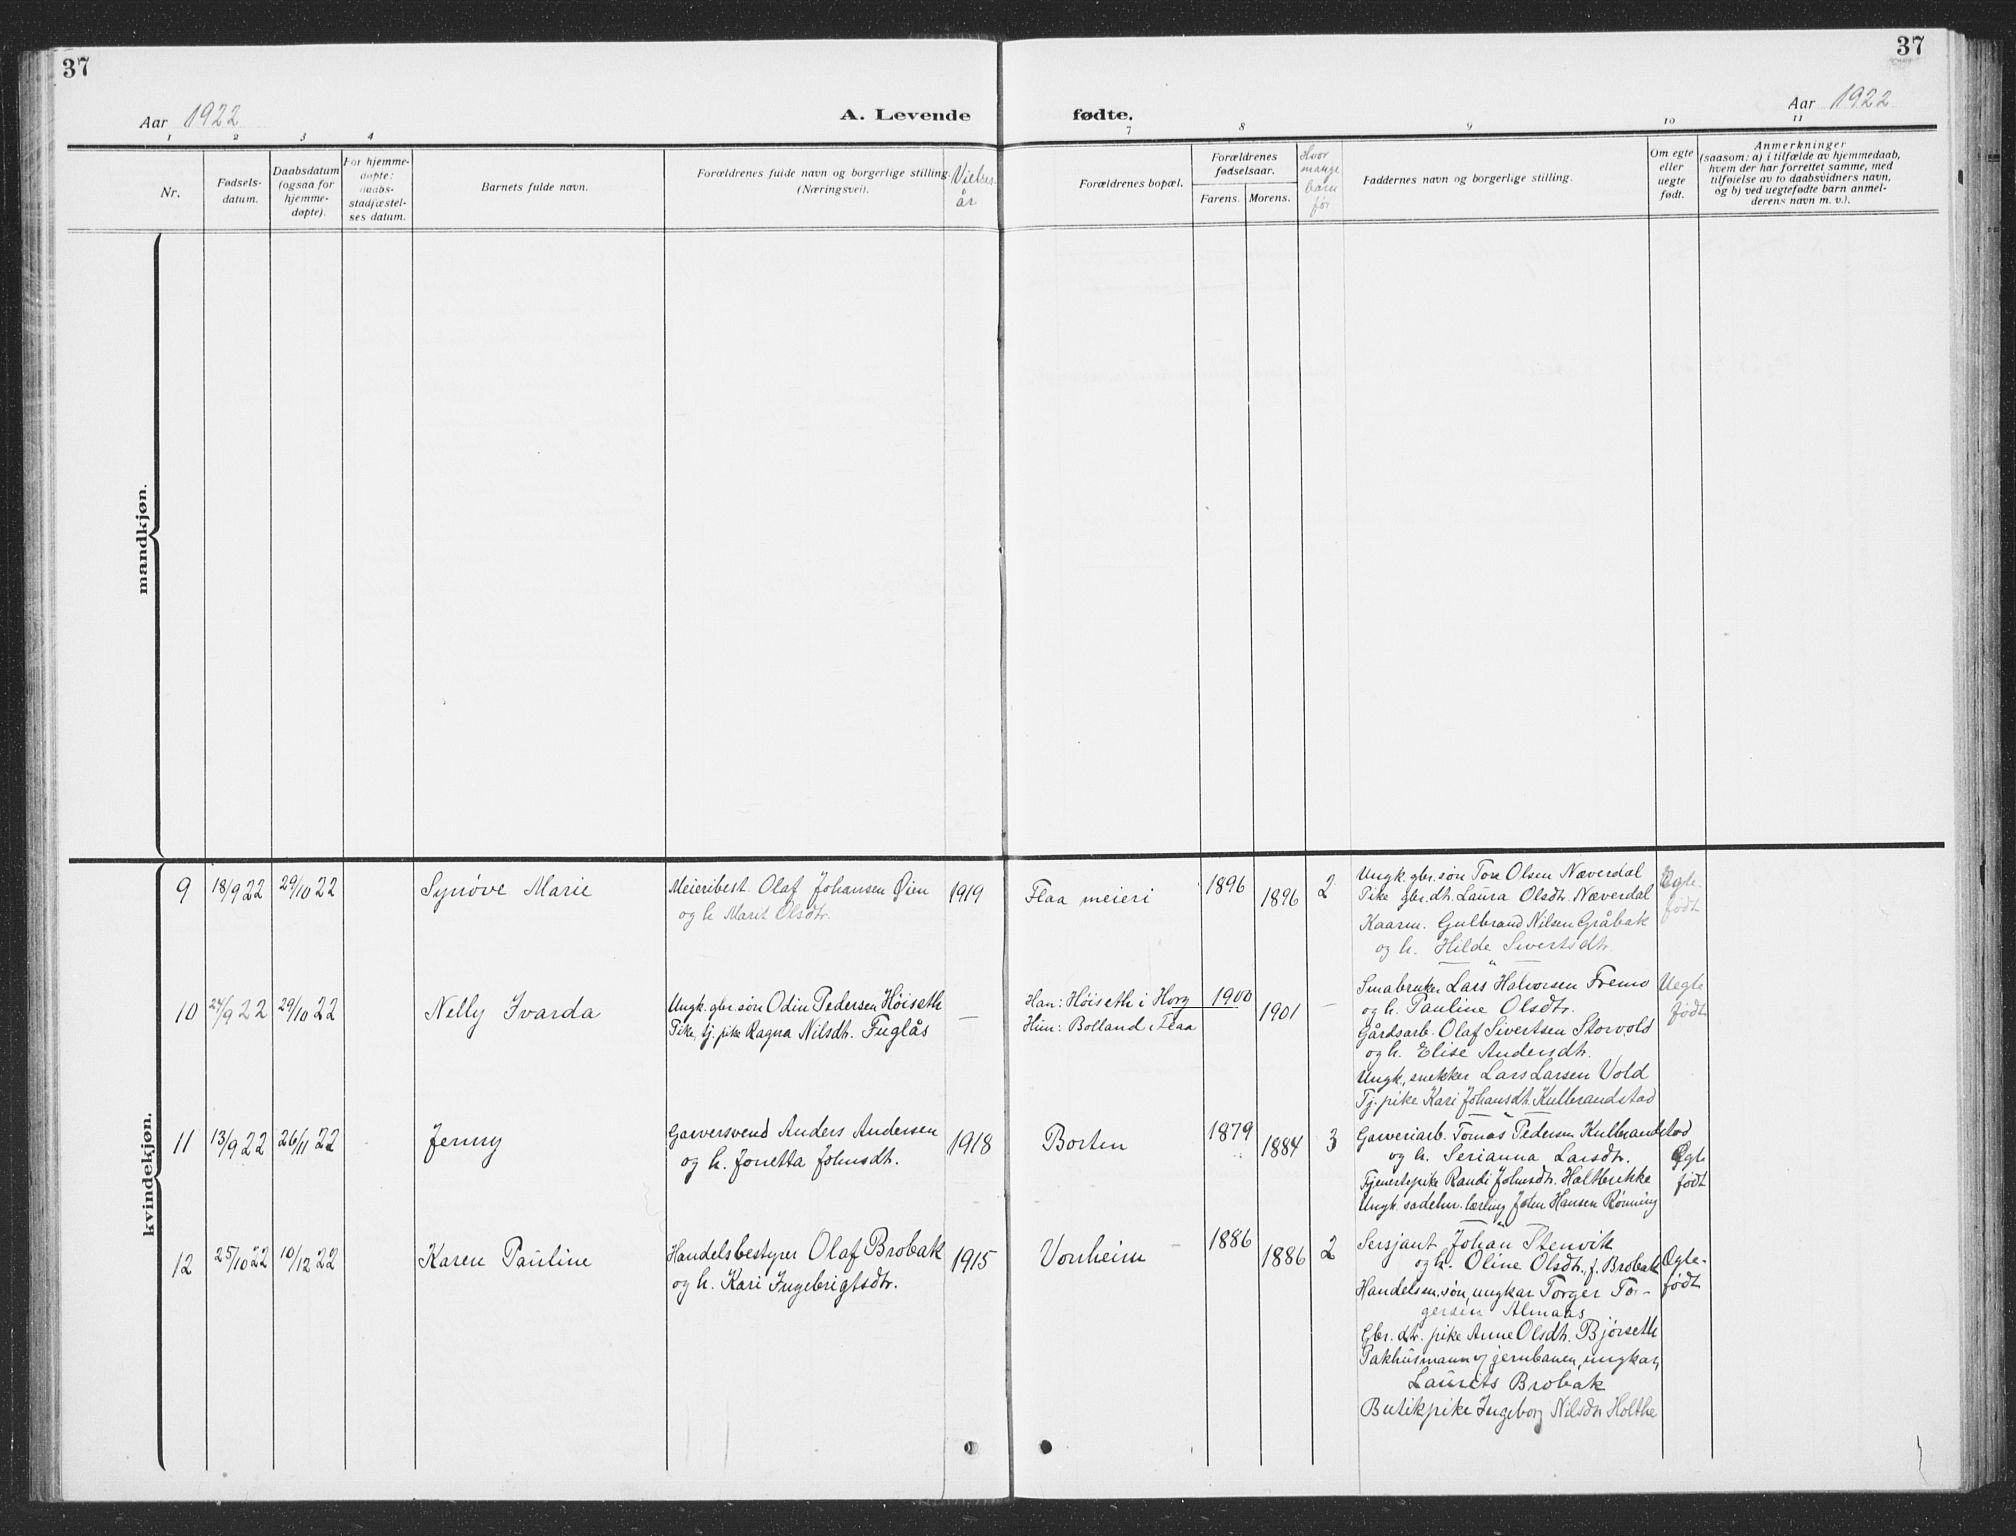 37
37
Aar 1922
A. Levende fødte.
Aar 1922
1 2 3 4 7 8 9 10 11
Nr.
Fødsels-
datum.
Daabsdatum
(ogsaa for
hjemme-
døpte).
For hjemme-
døpte:
daabs-
stadfæstel-
ses datum.
Barnets fulde navn.
Forældrenes fulde navn og borgerlige stilling.
(Næringsvei).
Vielses
år
Forældrenes bopæl.
Forældrenes
fødselsaar.
Farens. Morens.
Hvor
mange
barn
før
Faddernes navn og borgerlige stilling.
Om egte
eller
uegte
født.
Anmerkninger
(saasom: a) i tilfælde av hjemmedaab,
hvem der har forrettet samme, med
tilføielse av to daabsvidners navn,
og b) ved uegtefødte barn anmel-
derens navn m. v.).
mandkjøn.
kvindekjøn.
9 18/9 22 29/10 22 Synøve Marie
Meieribest. Olaf Johansen Øien
og h. Marit Olsdtr.
1919 Flaa meieri 1896 1896 2
Ungk. gbr. søn Tore Olsen Næverdal
Pike gbr. dtr. Laura Olsdtr. Næverdal
Kaarm. Gulbrand Nilsen Gråbak
og h. Hilde Sivertsdtr.
Egte-
født
10 24/9 22 29/10 22 Nelly Ivarda
Ungk. gbr. søn Odin Pedersen Höiseth
Pike, tj. pike Ragna Nilsdtr. Fuglås
—
Han: Höiseth i Horg
Hun: Bolland i Flaa
1900 1901 —
Smabruker Lars Halvorsen Fremo
og h. Pauline Olsdtr.
Gårdsarb. Olaf Sivertsen Storvold
og h. Elise Andersdtr.
Ungk., snekker Lars Larsen Vold
Tj. pike Kari Johansdtr. Kulbrandstad
Uegte
født
11 13/9 22 26/11 22 Jenny
Garversvend Anders Andersen
og h. Jonetta Johnsdtr.
1918 Borten 1879 1884 3
Garveriarb. Tomas Pedersen Kulbrandstad
og h. Serianna Larsdtr.
Tjenestepike Randi Johnsdtr. Holtbakke
Ungk. sadelm. lærling John Hansen Rønning
Egte
født
12 25/10 22 10/12 22 Karen Pauline
Handelsbestyrer Olaf Brobak
og h. Kari Ingebrigtsdtr.
1915 Vonheim 1886 1886 2
Sersjant Johan Stenvik
og h. Oline Olsdtr., f. Brobak
Handelsm. søn, ungkar Torger Tor-
gersen Almaas
Gbr. dtr. pike Anne Olsdtr. Bjørseth
Pakhusmann v/ jernbanen, ungkar,
Laurits Brobak
Butikpike Ingeborg Nilsdtr Holthe
Egte-
født